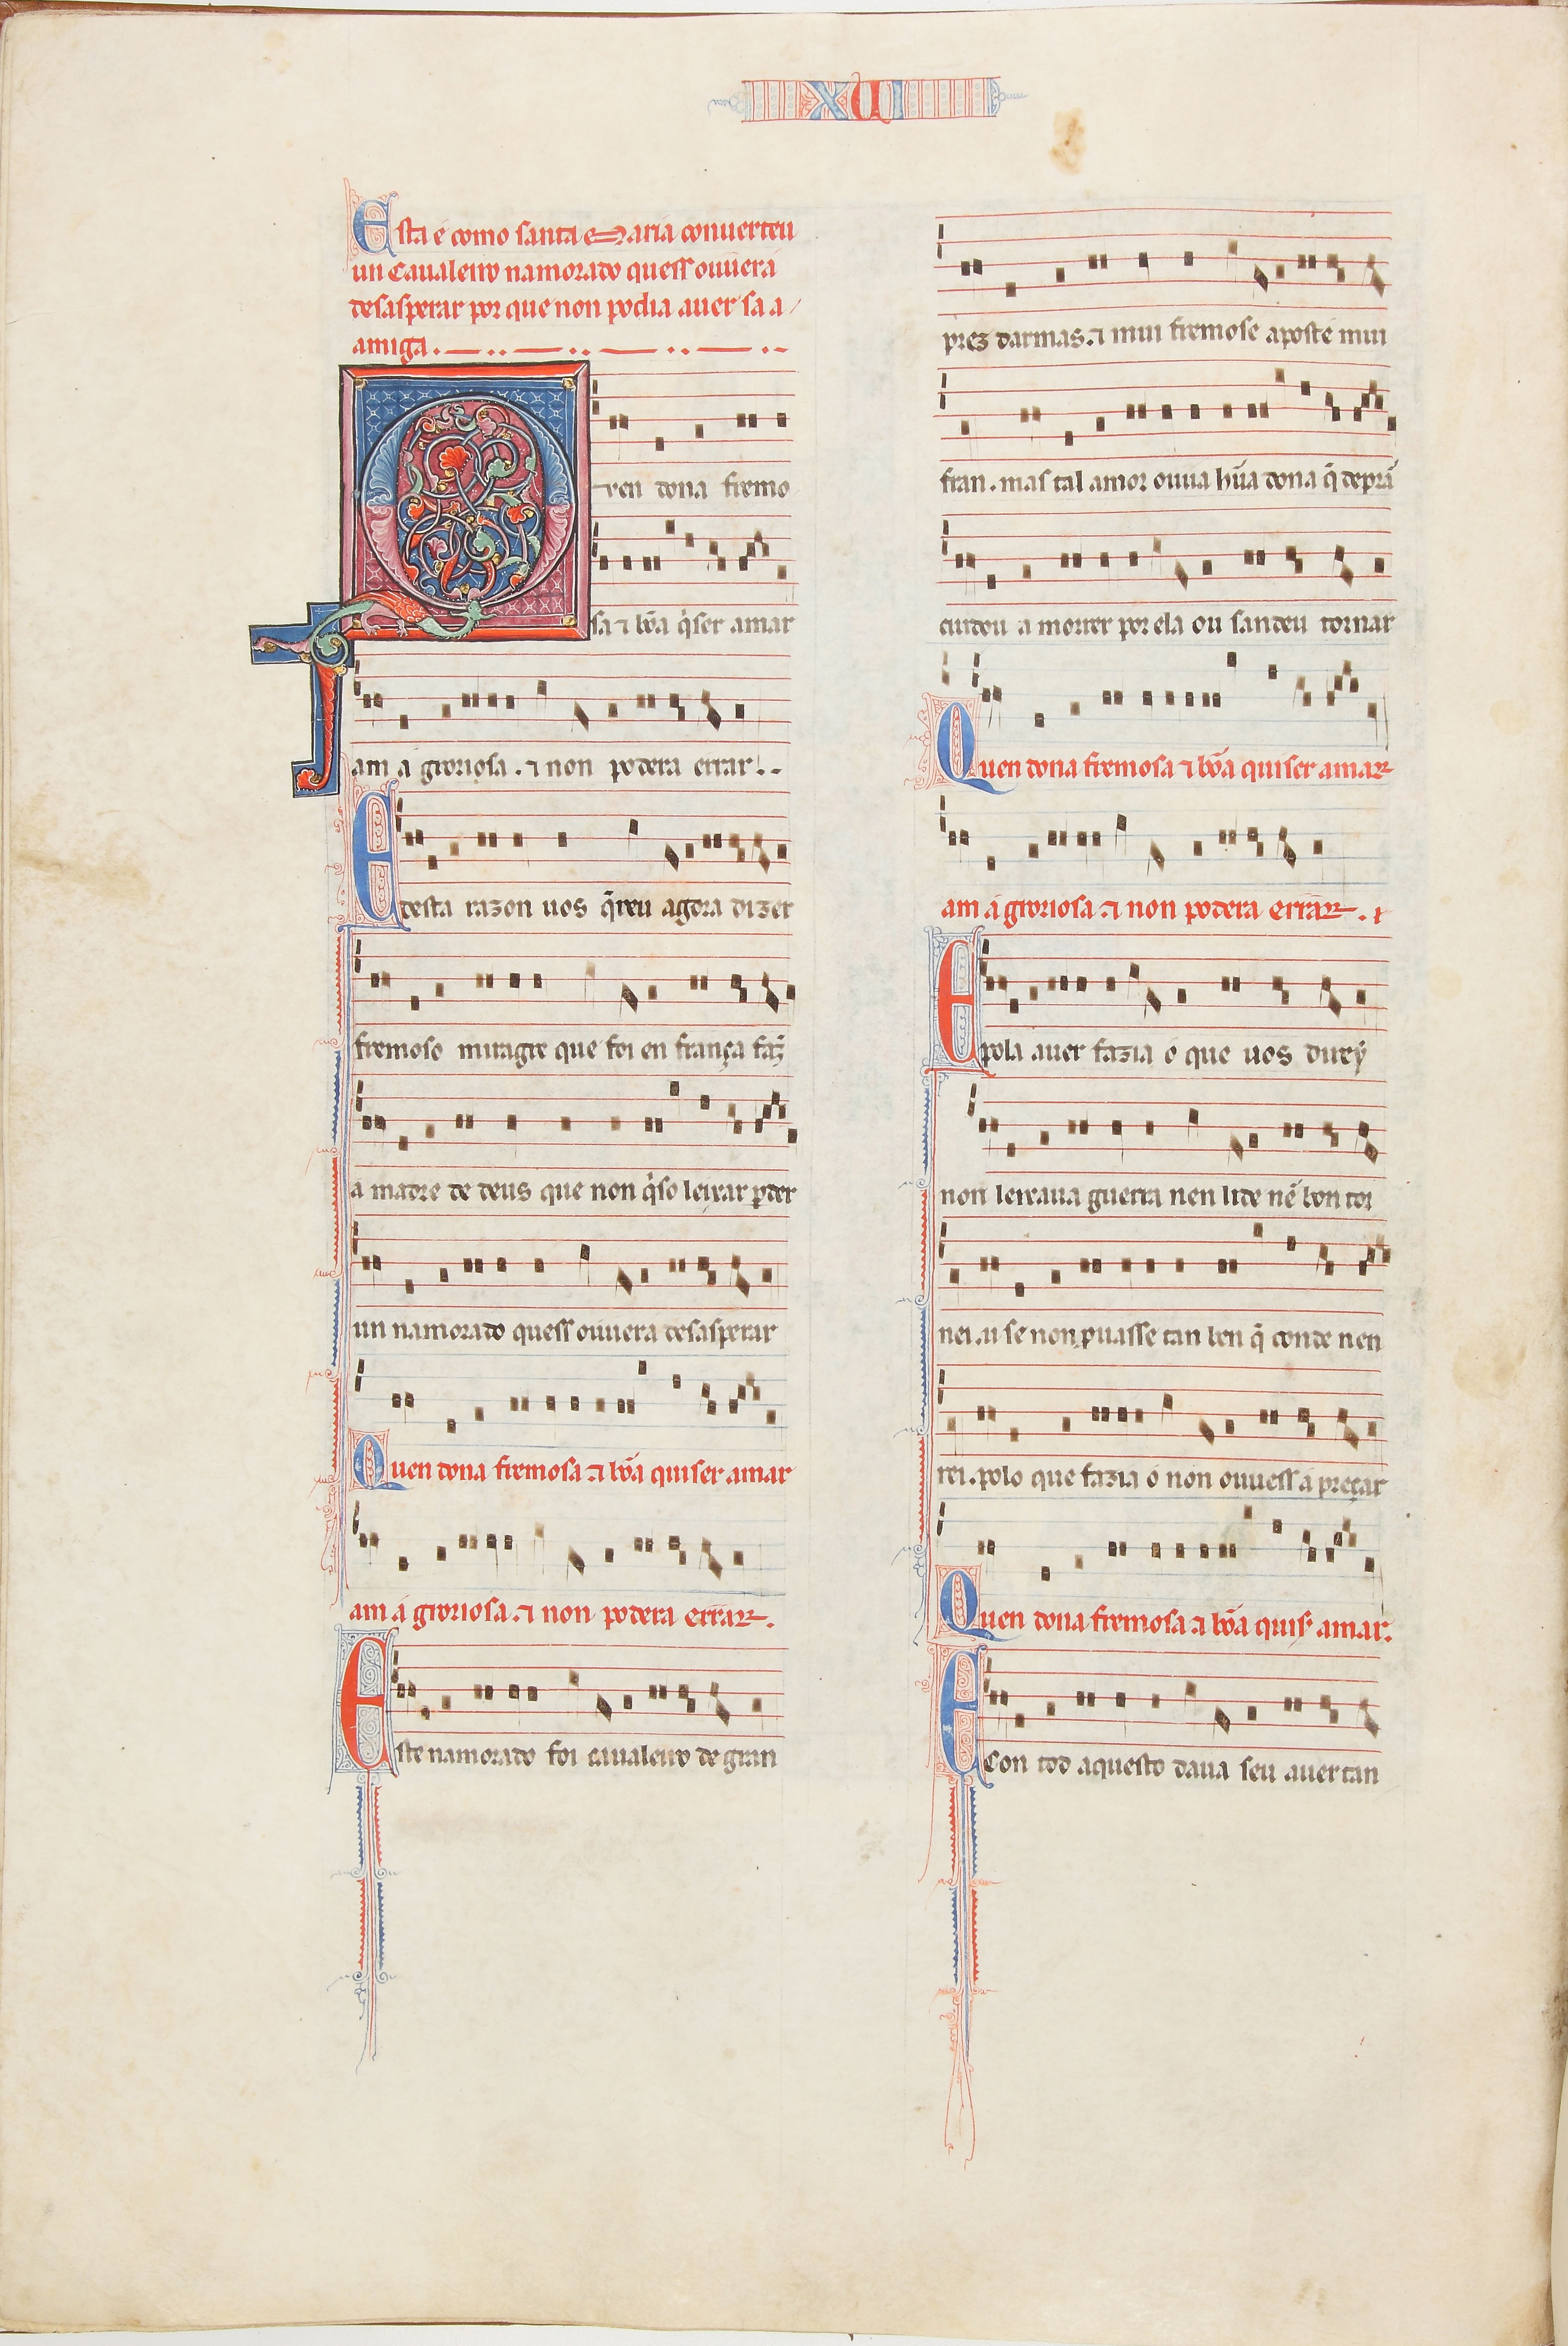 XVI
Esta é como santa Maria conuerteu
un Caualeiro namorado quess ouuera
desasperar por que non podia auer sa a
amiga.
Quen dona fremo
sa ⁊ bõa q̇ser amar
am a groriosa. ⁊ non poderá errar.
E desta razon uos q̄reu agora dizer
fremoso miragre que foi en frança faz̃
a madre de deus que non q̇so leixar ꝑder
un namorado quess ouuera desasperar
Quen dona fremosa ⁊ bõa quiser amar
am á groriosa. ⁊ non poderá errar.
Este namorado foi caualeiro de gran
prez darmas. ⁊ mui fremose aposte mui
fran. mas tal amor ouua hũa dona q̄ de prã
cuidou a morrer por ela ou sandeu tornar
Quen dona fremosa ⁊ bõa quiser amar
am á groriosa ⁊ non poderá errar.
E pola auer fazia o que uos direy
non leixaua guerra nen lide nẽ bon tor
nei. u se non ꝓuasse tan ben q̄ conde nen
rei. polo que fazia o non ouuess a preçar
Quen dona fremosa ⁊ bõa quis' amar.
E Con tod aquesto daua seu auer tan